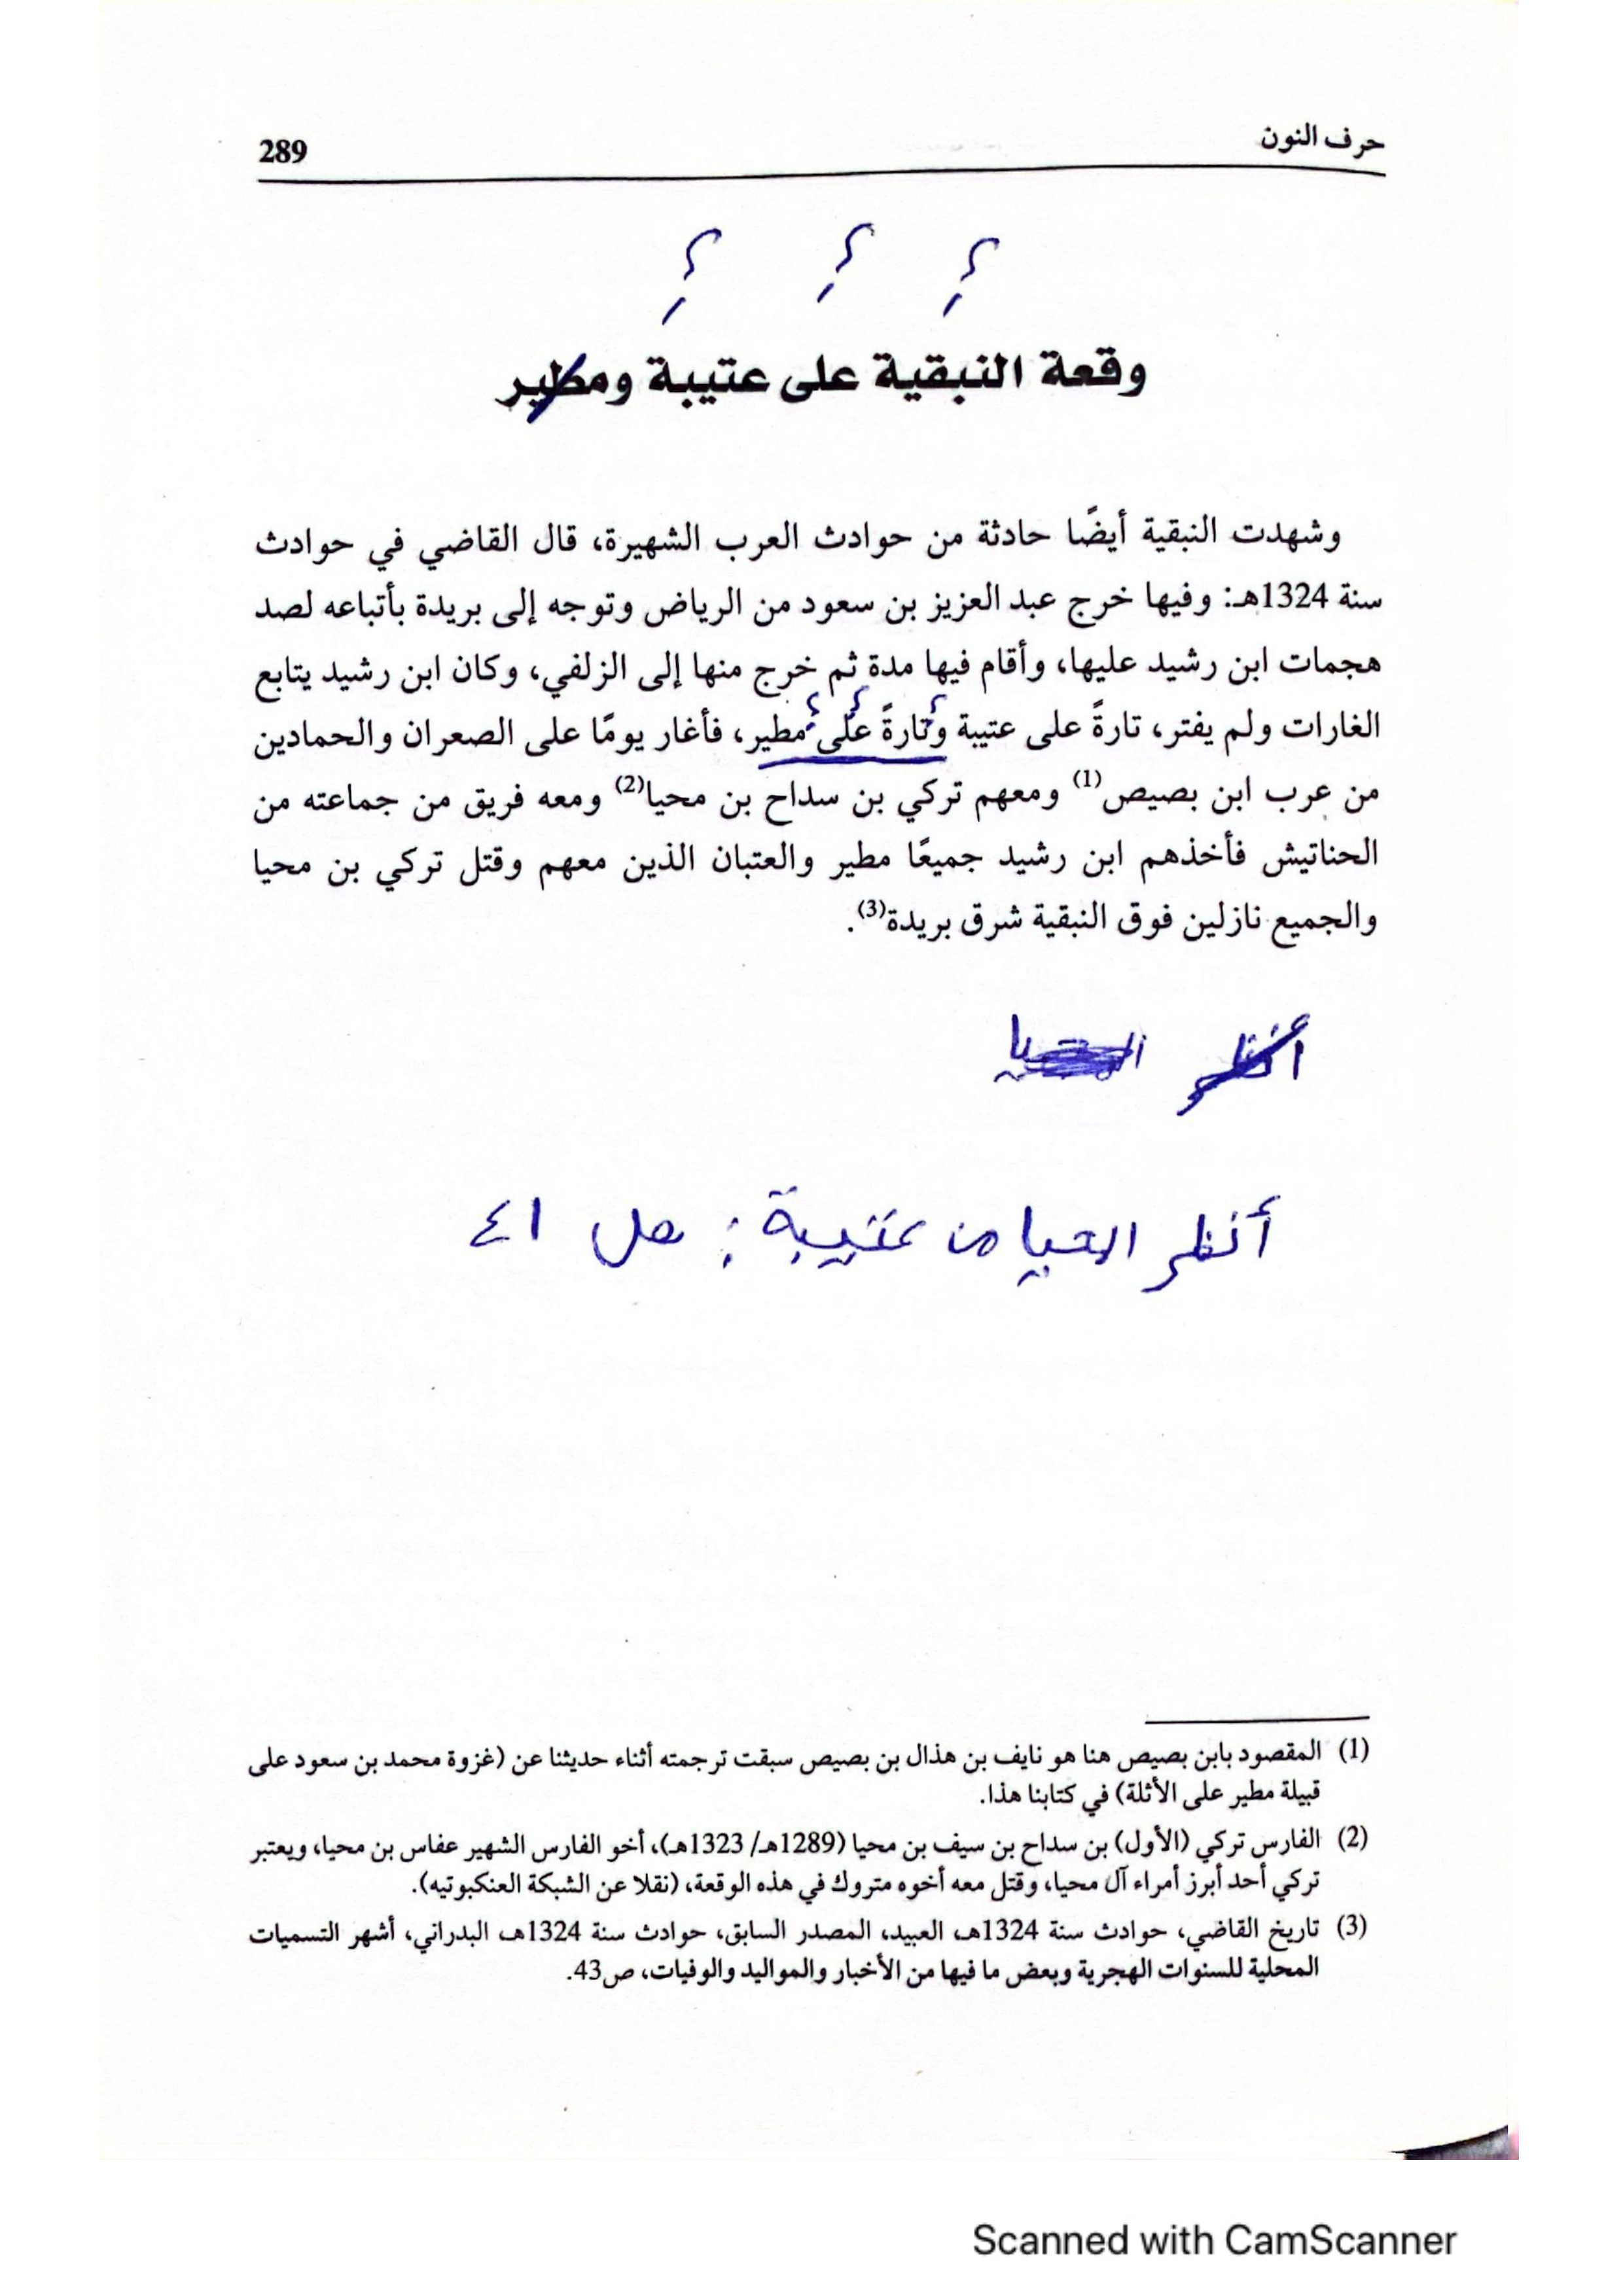 حرف النون
289
؟ ؟ ؟
وقعة النبقية على عتيبة ومطير
وشهدت النبقية أيضًا حادثة من حوادث العرب الشهيرة، قال القاضي في حوادث
سنة 1324هـ: وفيها خرج عبد العزيز بن سعود من الرياض وتوجه إلى بريدة بأتباعه لصد
هجمات ابن رشيد عليها، وأقام فيها مدة ثم خرج منها إلى الزلفي، وكان ابن رشيد يتابع
؟ ؟ ؟
الغارات ولم يفتر، تارةً على عتيبة وتارةً على مطير، فأغار يومًا على الصعران والحمادين
من عرب ابن بصيص(1) ومعهم تركي بن سداح بن محيا(2) ومعه فريق من جماعته من
الحناتيش فأخذهم ابن رشيد جميعًا مطير والعتبان الذين معهم وقتل تركي بن محيا
والجميع نازلين فوق النبقية شرق بريدة(3).
أنظر
أنظر المحيا من عتيبة: ص ٤١
(1) المقصود بابن بصيص هنا هو نايف بن هذال بن بصيص سبقت ترجمته أثناء حديثنا عن (غزوة محمد بن سعود على
قبيلة مطير على الأثلة) في كتابنا هذا.
(2) الفارس تركي (الأول) بن سداح بن سيف بن محيا (1289هـ/ 1323هـ)، أخو الفارس الشهير عفاس بن محيا، ويعتبر
تركي أحد أبرز أمراء آل محيا، وقتل معه أخوه متروك في هذه الوقعة، (نقلا عن الشبكة العنكبوتيه).
(3) تاريخ القاضي، حوادث سنة 1324هـ، العبيد، المصدر السابق، حوادث سنة 1324هـ، البدراني، أشهر التسميات
المحلية للسنوات الهجرية وبعض ما فيها من الأخبار والمواليد والوفيات، ص43.
Scanned with CamScanner